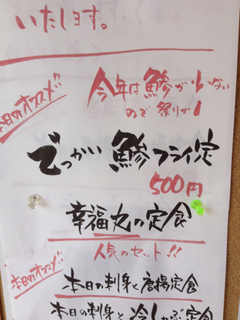 いたします。
今年は鯵が少ない
ので祭りが
本日のオススメ!!
でっかい鯵フライ定
500円
幸福丸の定食
人気のセット!!
本日のオススメ!!
本日の刺身と唐揚定食
本日の刺身と冷しゃぶ定食